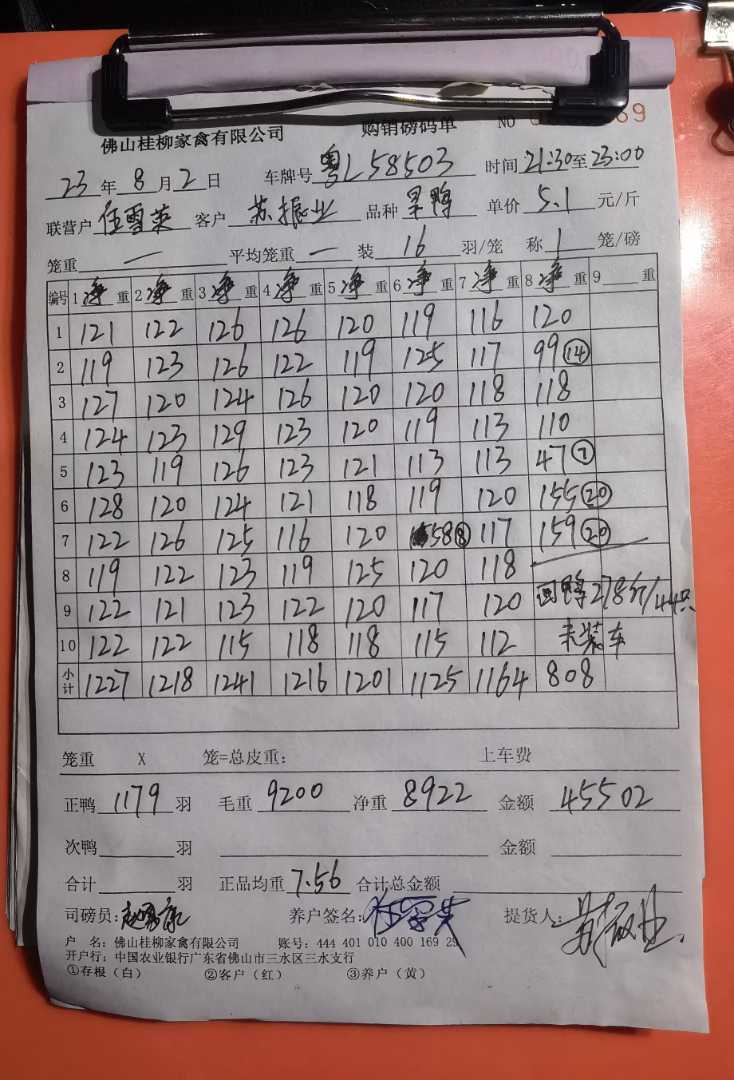 佛山桂柳家禽有限公司 购销磅码单 NO 89
23年8月2日 车牌号 粤L58503 时间 21:30至23:00
联营户 伍雪荣 客户 苏振业 品种 旱鸭 单价 5.1 元/斤
笼重 — 平均笼重 — 装 16 羽/笼 称 1 笼/磅
编号 1 净 重 2 净 重 3 净 重 4 净 重 5 净 重 6 净 重 7 净 重 8 净 重 9 重
1 121 122 126 126 120 119 116 120
2 119 123 126 122 119 125 117 99 ⑭
3 127 120 124 126 120 120 118 118
4 124 123 129 123 120 119 113 110
5 123 119 126 123 121 113 113 47 ⑦
6 128 120 124 121 118 119 120 155 ⑳
7 122 126 125 116 120 58 ⑧ 117 159 ⑳
8 119 122 123 119 125 120 118
9 122 121 123 122 120 117 120 回鸭278斤/44只
10 122 122 115 118 118 115 112 未装车
小计 1227 1218 1241 1216 1201 1125 1164 808
笼重 X 笼=总皮重: 上车费
正鸭 1179 羽 毛重 9200 净重 8922 金额 45502
次鸭 羽 金额
合计 羽 正品均重 7.56 合计总金额
司磅员: 养户签名: 提货人: 苏振业
户 名: 佛山桂柳家禽有限公司 账号: 444 401 010 400 169 25
开户行: 中国农业银行广东省佛山市三水区三水支行
①存根（白） ②客户（红） ③养户（黄）